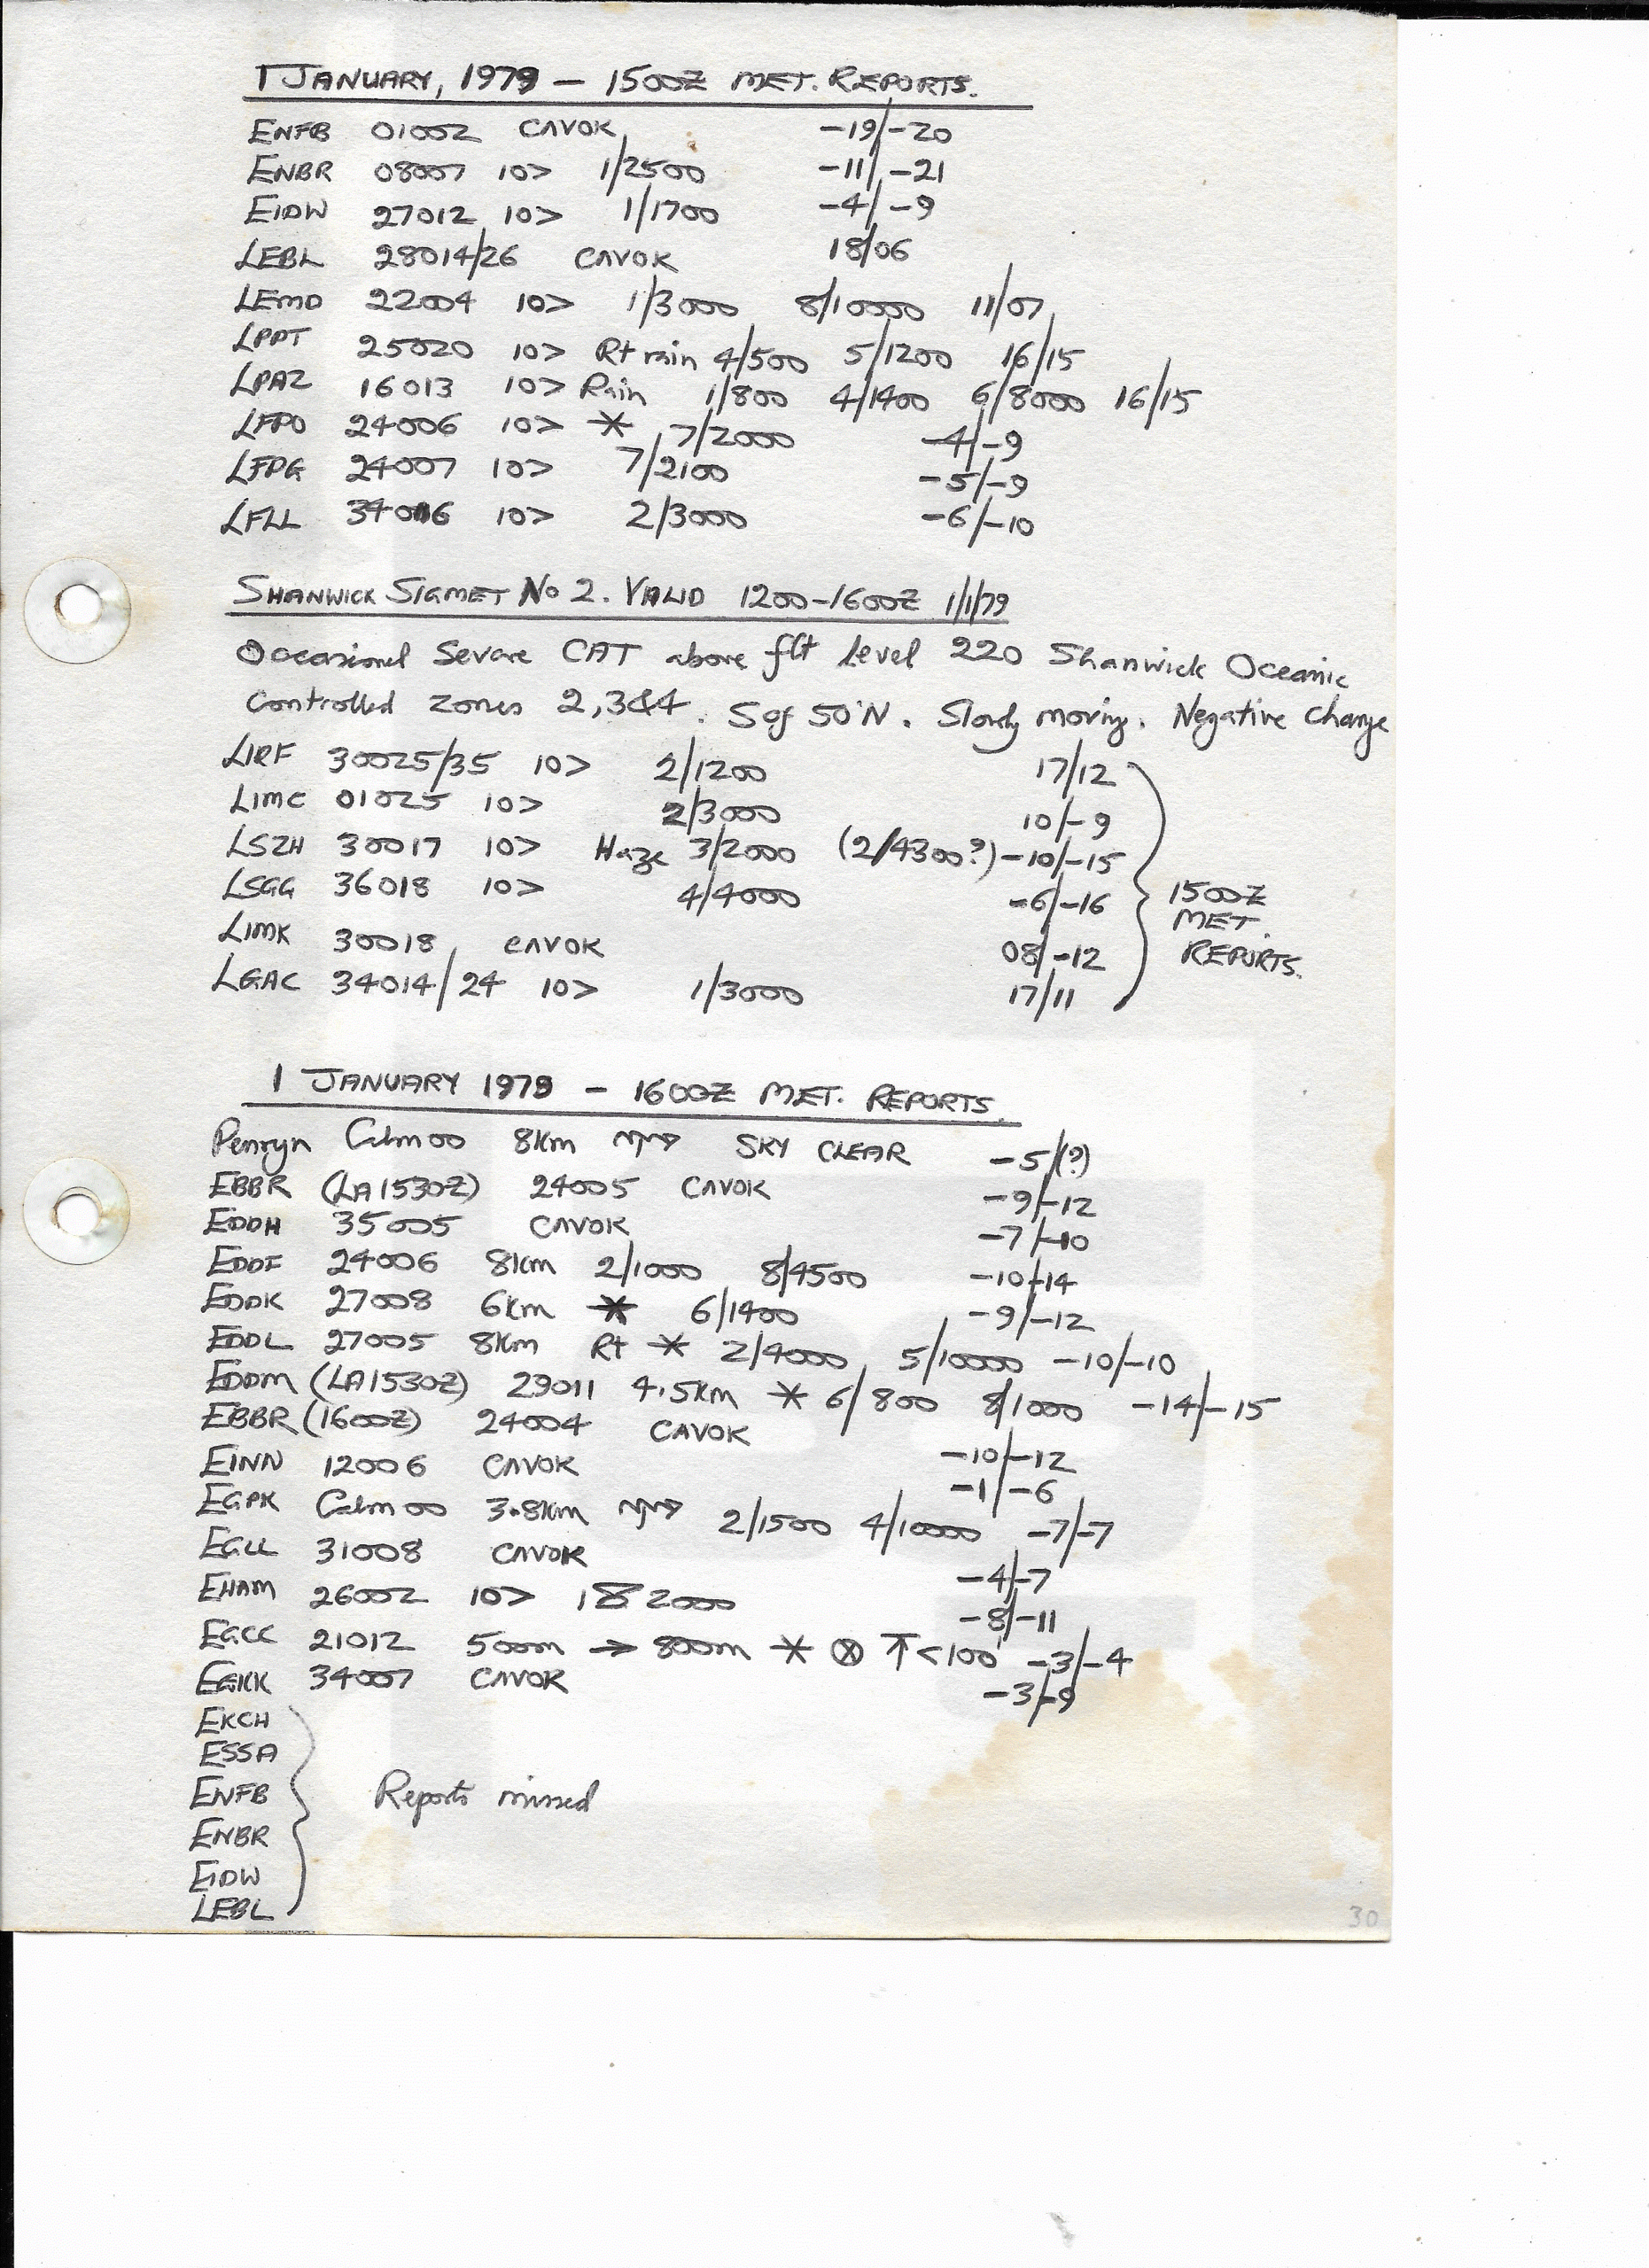 1 JANUARY, 1979 - 1500Z MET. REPORTS.
ENFB 01002 CAVOK -19/-20
ENBR 08007 10> 1/2500 -11/-21
EIDW 27012 10> 1/1700 -4/-9
LEBL 28014/26 CAVOK 18/06
LEMD 22004 10> 1/3000 8/10000 11/07
LPPT 25020 10> Rt rain 4/500 5/1200 16/15
LPAZ 16013 10> Rain 1/800 4/1400 6/8000 16/15
LFPO 24006 10> * 7/2000 -4/-9
LFPG 24007 10> 7/2100 -5/-9
LFLL 34016 10> 2/3000 -6/-10
SHANWICK SIGMET No 2. VALID 1200-1600Z 1/1/79
Occasional Severe CAT above flt Level 220 Shanwick Oceanic
Controlled zones 2,3&4. S of 50°N. Slowly moving. Negative change
LIRF 30025/35 10> 2/1200 17/12
LIMC 01025 10> 2/3000 10/-9
LSZH 30017 10> Haze 3/2000 (2/4300?) -10/-15
LSGG 36018 10> 4/4000 -6/-16
LIMK 30018 CAVOK 08/-12
LGAC 34014/24 10> 1/3000 17/11
1500Z
MET.
REPORTS.
1 JANUARY 1979 - 1600Z MET. REPORTS.
Penryn Calm 00 8km SKY CLEAR -5/(?)
EBBR (LA1530Z) 24005 CAVOK -9/-12
EDDH 35005 CAVOK -7/-10
EDDF 24006 8km 2/1000 8/4500 -10/-14
EDDK 27008 6km * 6/1400 -9/-12
EDDL 27005 8km Rt * 2/4000 5/10000 -10/-10
EDDM (LA1530Z) 29011 4.5km * 6/800 8/1000 -14/-15
EBBR (1600Z) 24004 CAVOK -10/-12
EINN 12006 CAVOK -1/-6
EGPK Calm 00 3.8km 2/1500 4/10000 -7/-7
EGLL 31008 CAVOK -4/-7
EHAM 26002 10> 2000 -8/-11
EGCC 21012 500m → 800m * ⊗ ↑<100' -3/-4
EGKK 34007 CAVOK -3/-9
EKCH
ESSA
ENFB
Reports missed
ENBR
EIDW
LEBL
30